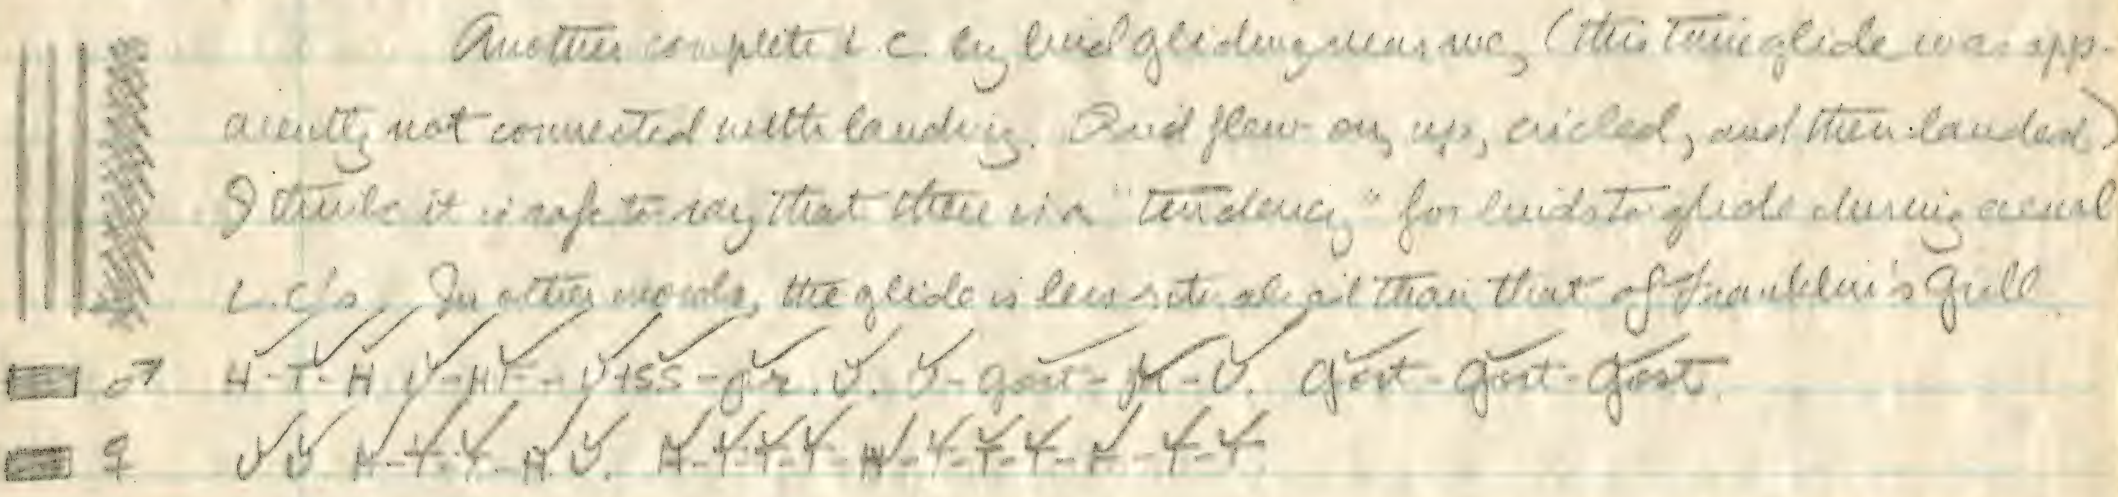 Another complete L.C. by bird gliding near me, (this time glide was app-
arently not connected with landing. Bird flew on, up, circled, and then landed.)
I think it is safe to say that there is a "tendency" for birds to glide during aerial
L.C.'s. In other words, the glide is less ritualized than that of Franklin's Gull
♂ H-T-H U-HT-U+SS- U. U-gost-H-U. gost-gost-gost.
♀ U U H-T-T H U. H-T-T-T-H-T-T-T-H-T-T.